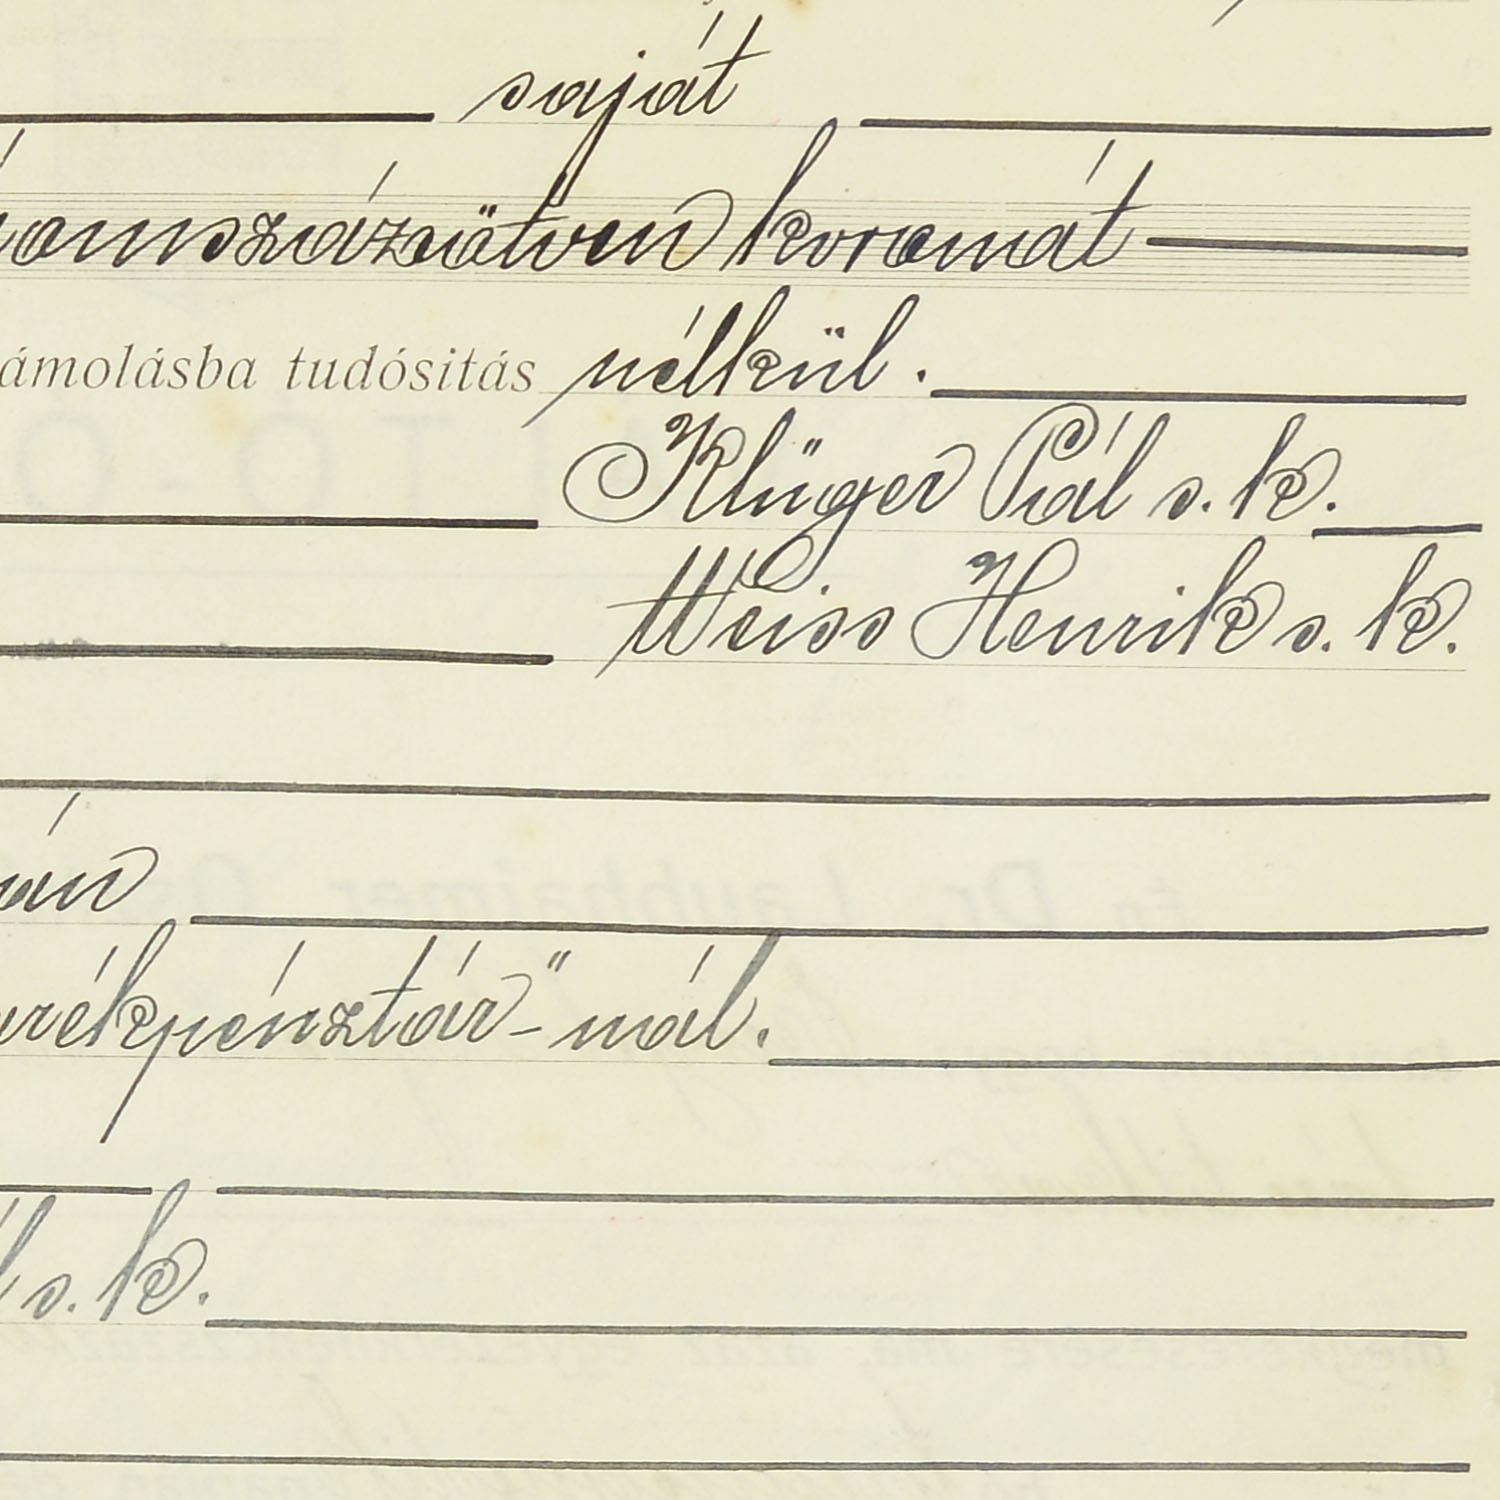 saját
romszázötven koronát
ámolásba tudósitás nélkül.
Klüger Pál s. k.
Weiss Henrik s. k.
án
rékpénztár"-nál.
l s. k.